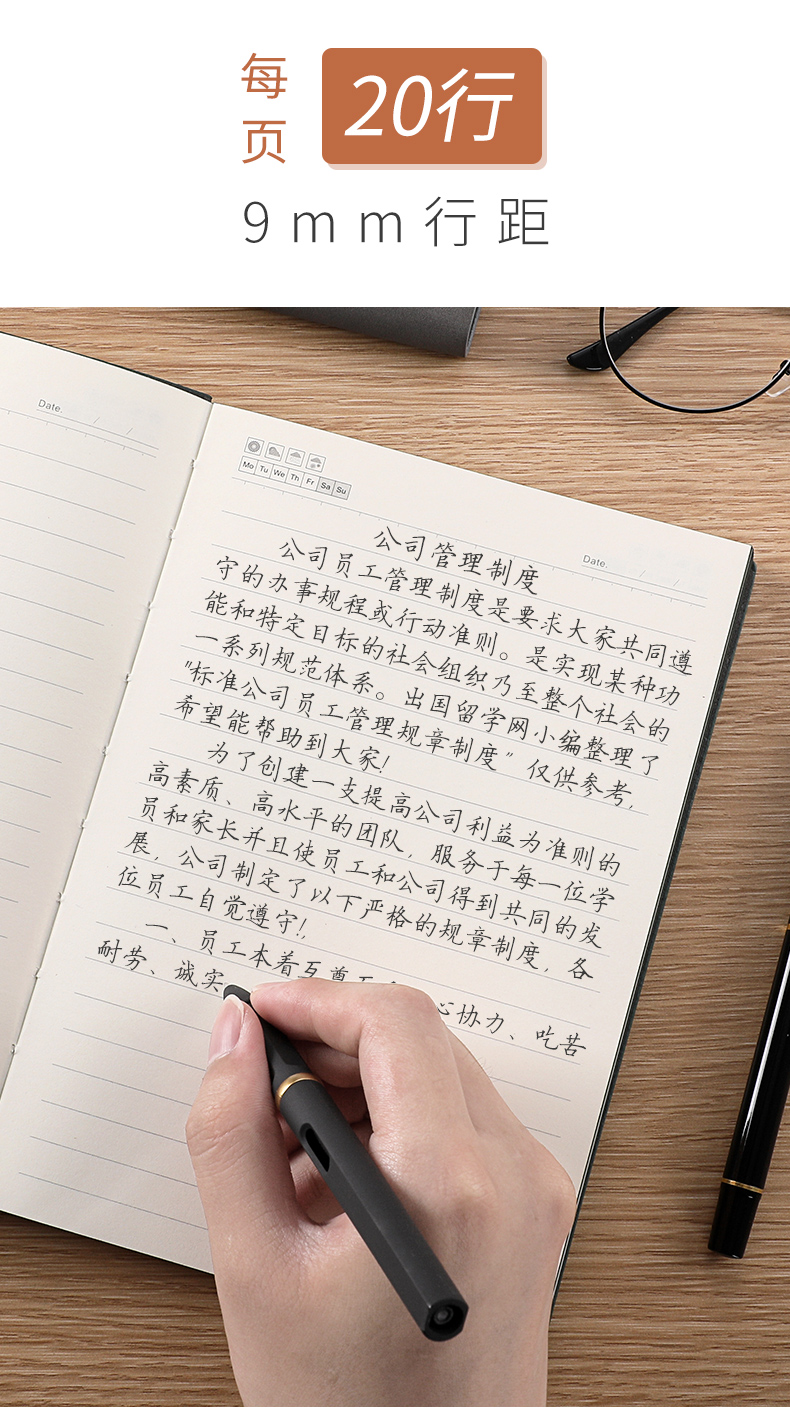 每页 20行
9mm行距
Date.
Mo Tu We Th Fr Sa Su
Date.
公司管理制度
公司员工管理制度是要求大家共同遵
守的办事规程或行动准则。是实现某种功
能和特定目标的社会组织乃至整个社会的
一系列规范体系。出国留学网小编整理了
"标准公司员工管理规章制度"仅供参考,
希望能帮助到大家!
为了创建一支提高公司利益为准则的
高素质、高水平的团队,服务于每一位学
员和家长并且使员工和公司得到共同的发
展,公司制定了以下严格的规章制度,各
位员工自觉遵守!,
一、员工本着互尊
心协力、吃苦
耐劳、诚实